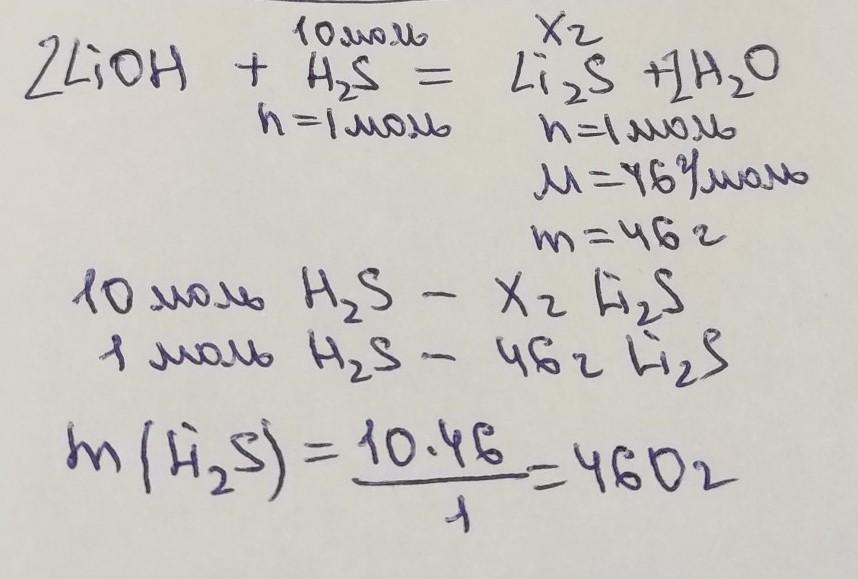 10 моль X г
2LiOH + H₂S = Li₂S + 2H₂O
n = 1 моль n = 1 моль
M = 46 г/моль
m = 46 г
10 моль H₂S – X г Li₂S
1 моль H₂S – 46 г Li₂S
m(Li₂S) = 10·46 / 1 = 460 г